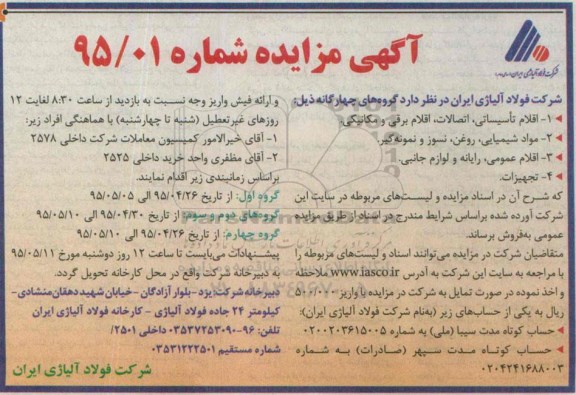 آگهی مزایده شماره ۹۵/۰۱
شرکت فولاد آلیاژی ایران
شرکت فولاد آلیاژی ایران در نظر دارد گروه‌های چهارگانه ذیل:
۱- اقلام تأسیساتی، اتصالات، اقلام برقی و مکانیکی.
۲- مواد شیمیایی، روغن، نسوز و نمونه‌گیر.
۳- اقلام عمومی، رایانه و لوازم جانبی.
۴- تجهیزات.
که شرح آن در اسناد مزایده و لیست‌های مربوطه در سایت این
شرکت آورده شده براساس شرایط مندرج در اسناد از طریق مزایده
عمومی به‌فروش برساند.
متقاضیان شرکت در مزایده می‌توانند اسناد و لیست‌های مربوطه را
با مراجعه به سایت این شرکت به آدرس www.iasco.ir ملاحظه
و اخذ نموده در صورت تمایل به شرکت در مزایده با واریز ۵۰۰/۰۰۰
ریال به یکی از حساب‌های زیر (به‌نام شرکت فولاد آلیاژی ایران):
حساب کوتاه مدت سیبا (ملی) به شماره ۰۲۰۰۲۰۳۶۱۵۰۰۵
حساب کوتاه مدت سپهر (صادرات) به شماره
۰۲۰۴۲۴۱۶۸۸۰۰۳
و ارائه فیش واریز وجه نسبت به بازدید از ساعت ۸:۳۰ لغایت ۱۲
روزهای غیرتعطیل (شنبه تا چهارشنبه) با هماهنگی افراد زیر:
۱- آقای خیرالامور کمیسیون معاملات شرکت داخلی ۲۵۷۸
۲- آقای مظفری واحد خرید داخلی ۲۵۲۵
براساس زمانبندی زیر اقدام نمایند.
گروه اول: از تاریخ ۹۵/۰۴/۲۶ الی ۹۵/۰۵/۰۵
گروه‌های دوم و سوم: از تاریخ ۹۵/۰۴/۳۰ الی ۹۵/۰۵/۱۰
گروه چهارم: از تاریخ ۹۵/۰۴/۲۶ الی ۹۵/۰۵/۱۰
پیشنهادات می‌بایست تا ساعت ۱۲ روز دوشنبه مورخ ۹۵/۰۵/۱۱
به دبیرخانه شرکت واقع در محل کارخانه تحویل گردد.
دبیرخانه شرکت: یزد- بلوار آزادگان - خیابان شهید دهقان‌منشادی-
کیلومتر ۲۴ جاده فولاد آلیاژی - کارخانه فولاد آلیاژی ایران
تلفن: ۹۶-۰۳۵۳۷۲۵۳۰۹۰ داخلی ۲۵۰۱/
شماره مستقیم ۰۳۵۳۱۲۲۲۵۰۱
شرکت فولاد آلیاژی ایران